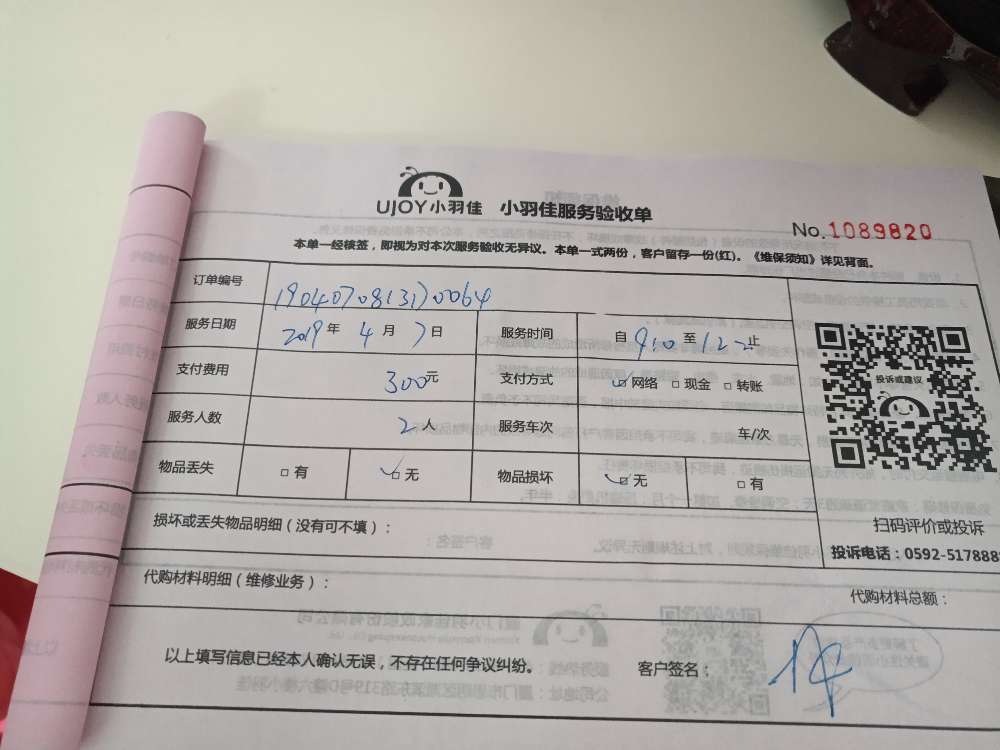 UJOY小羽佳 小羽佳服务验收单
No.1089820
本单一经核签，即视为对本次服务验收无异议。本单一式两份，客户留存一份(红)。《维保须知》详见背面。
订单编号
服务日期 2019年 4月 7日 服务时间 自 9:0 至 12 止
支付费用 300元 支付方式 ☑网络 □现金 □转账
服务人数 2人 服务车次 车/次
物品丢失 □有 ☑无 物品损坏 ☑无 □有
投诉或建议
扫码评价或投诉
投诉电话：0592-5178888
损坏或丢失物品明细（没有可不填）：
代购材料明细（维修业务）：
代购材料总额：
以上填写信息已经本人确认无误，不存在任何争议纠纷。 客户签名：